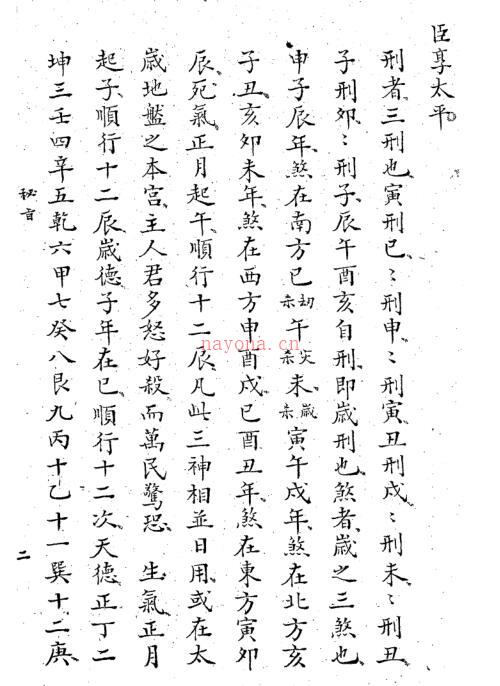 臣享太平
刑者三刑也寅刑巳〻刑申〻刑寅丑刑戌〻刑未〻刑丑
子刑夘〻刑子辰午酉亥自刑即嵗刑也煞者嵗之三煞也
申子辰年煞在南方巳劫杀午灾杀未嵗杀寅午戌年煞在北方亥
子丑亥夘未年煞在西方申酉戌巳酉丑年煞在東方寅夘
辰死氣正月起午順行十二辰凡此三神相並日用或在太
嵗地盤之本宮主人君多怒好殺而萬民驚恐 生氣正月
起子順行十二辰嵗德子年在巳順行十二次天德正丁二
坤三壬四辛五乾六甲七癸八艮九丙十乙十一巽十二庚
秘言
二
nayona.cn